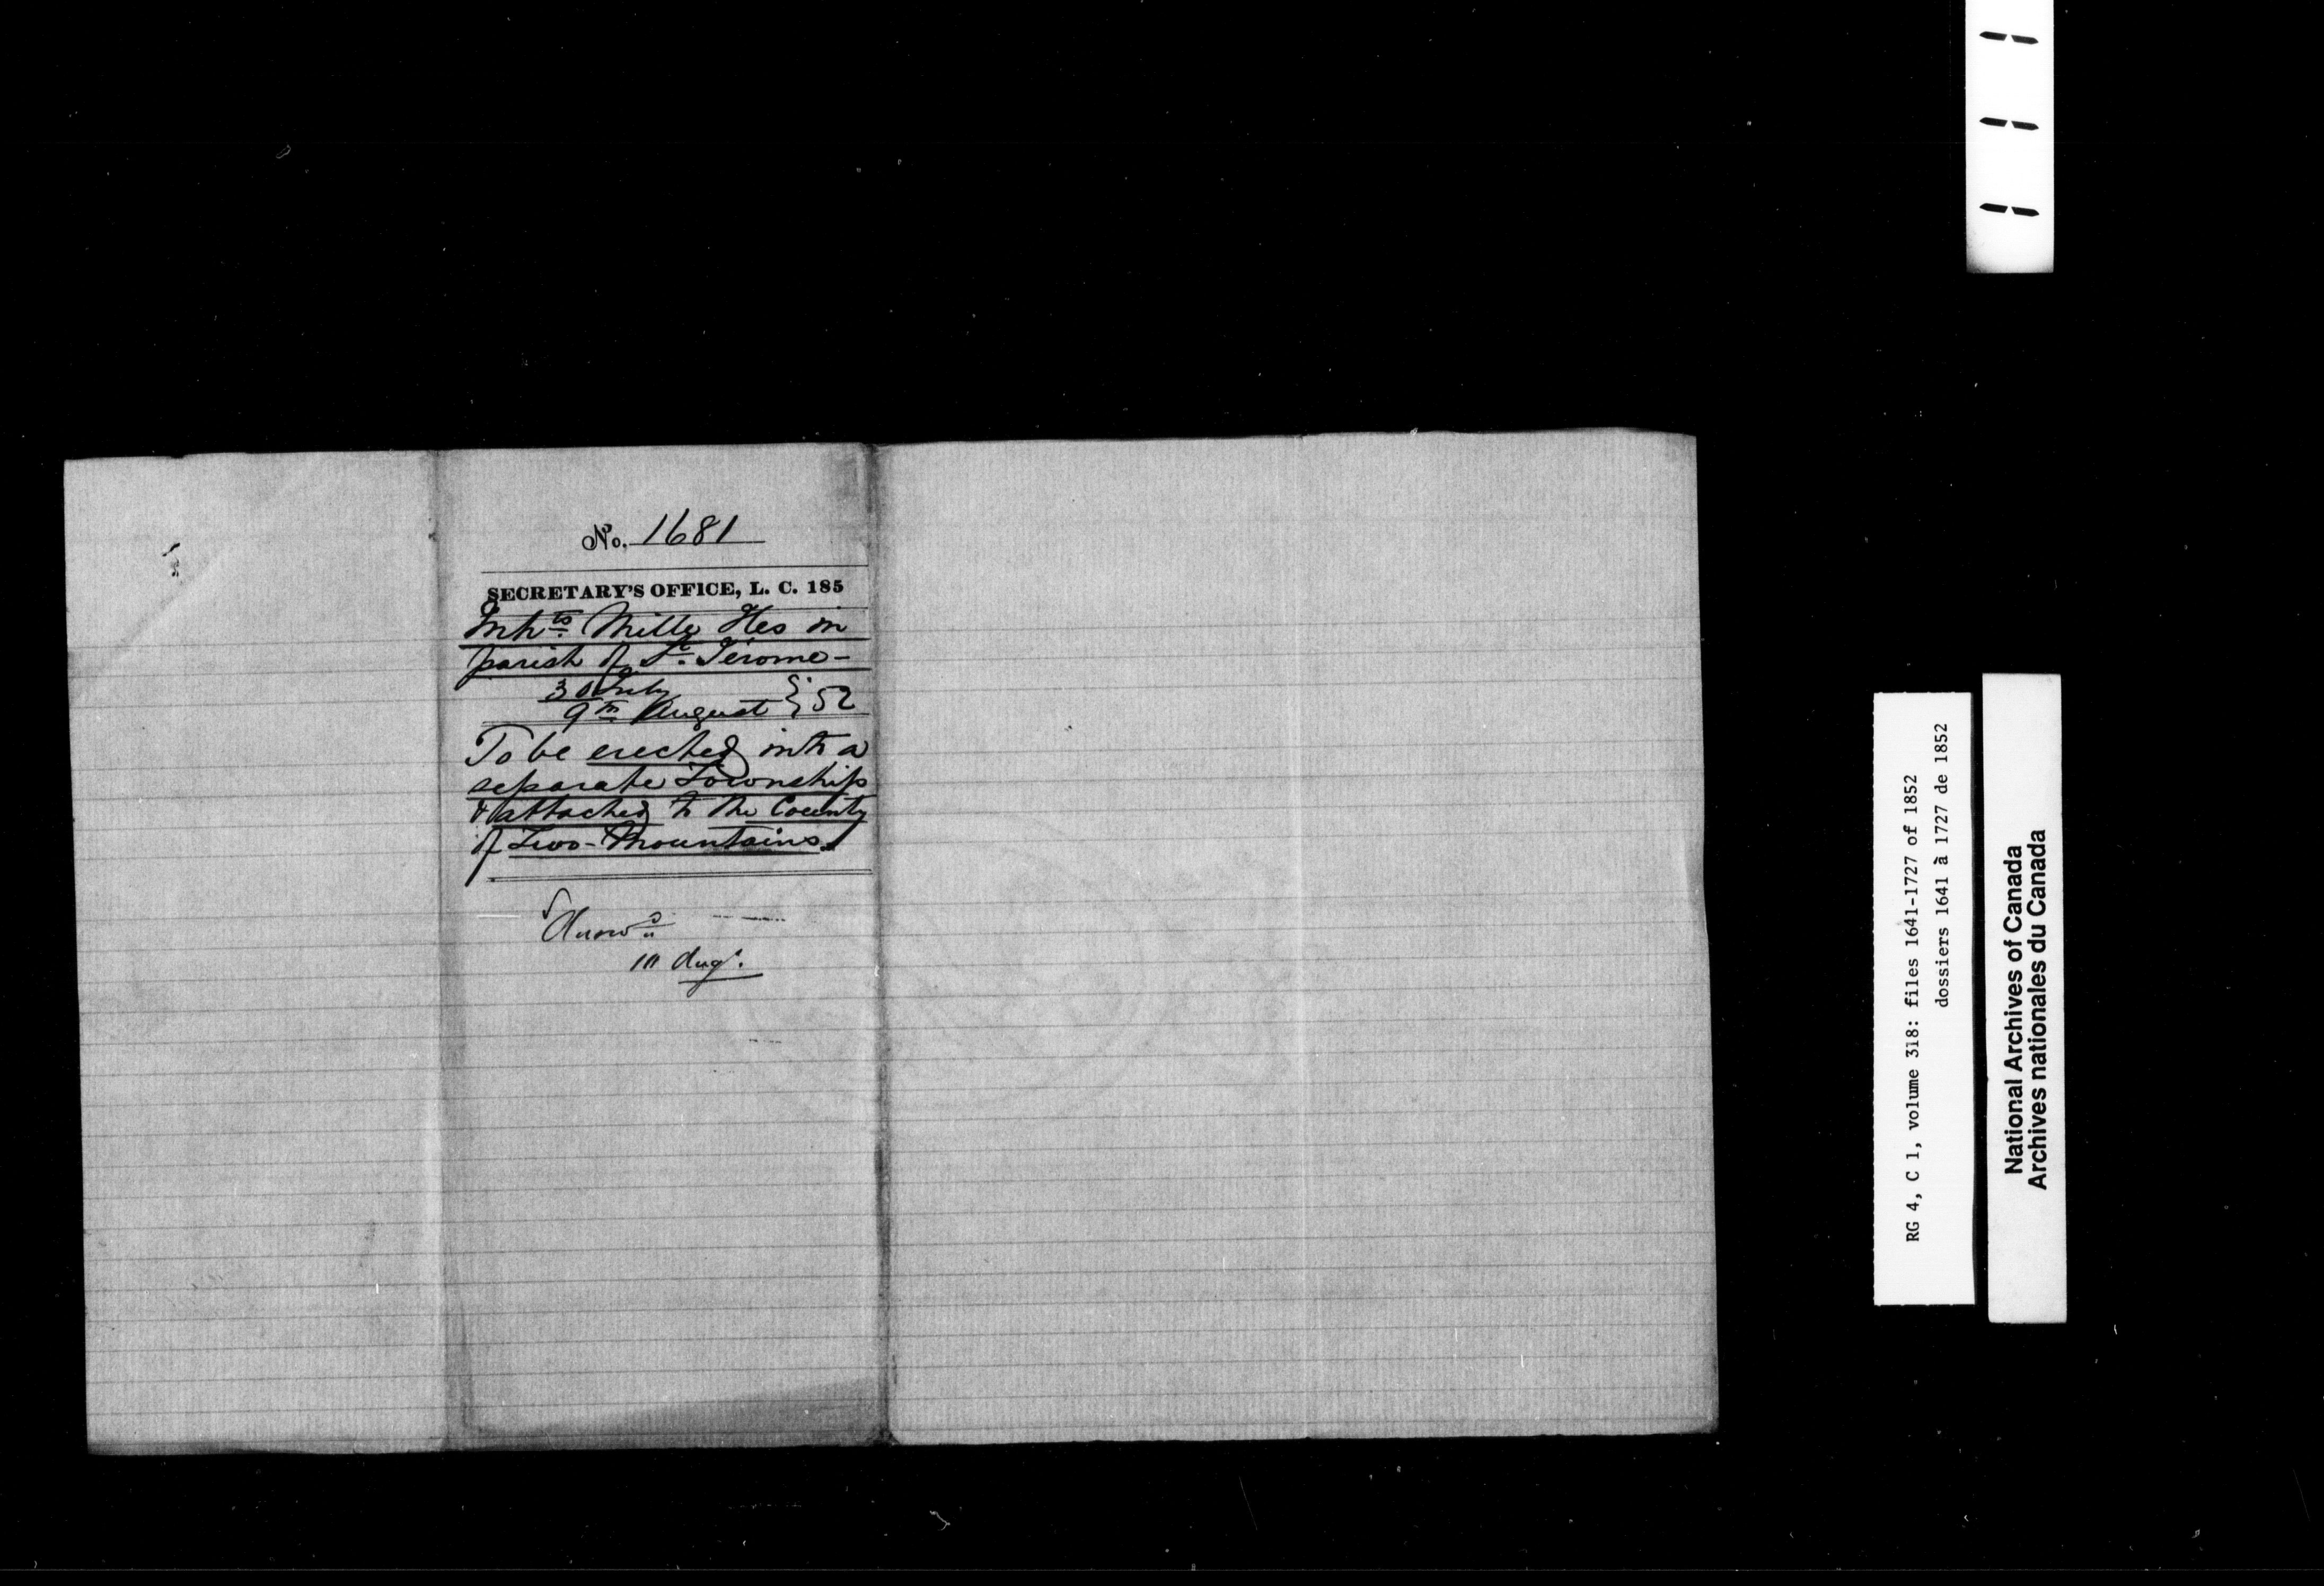 No. 1681
SECRETARY'S OFFICE, L. C. 185
Inhts Mille Iles in
parish of St. Jérome -
30 July
9th August } 52
To be erected into a
separate Township
& attached to the County
of Two-Mountains.
Answd
Augt.
RG 4, C 1, volume 318: files 1641-1727 of 1852
dossiers 1641 à 1727 de 1852
National Archives of Canada
Archives nationales du Canada